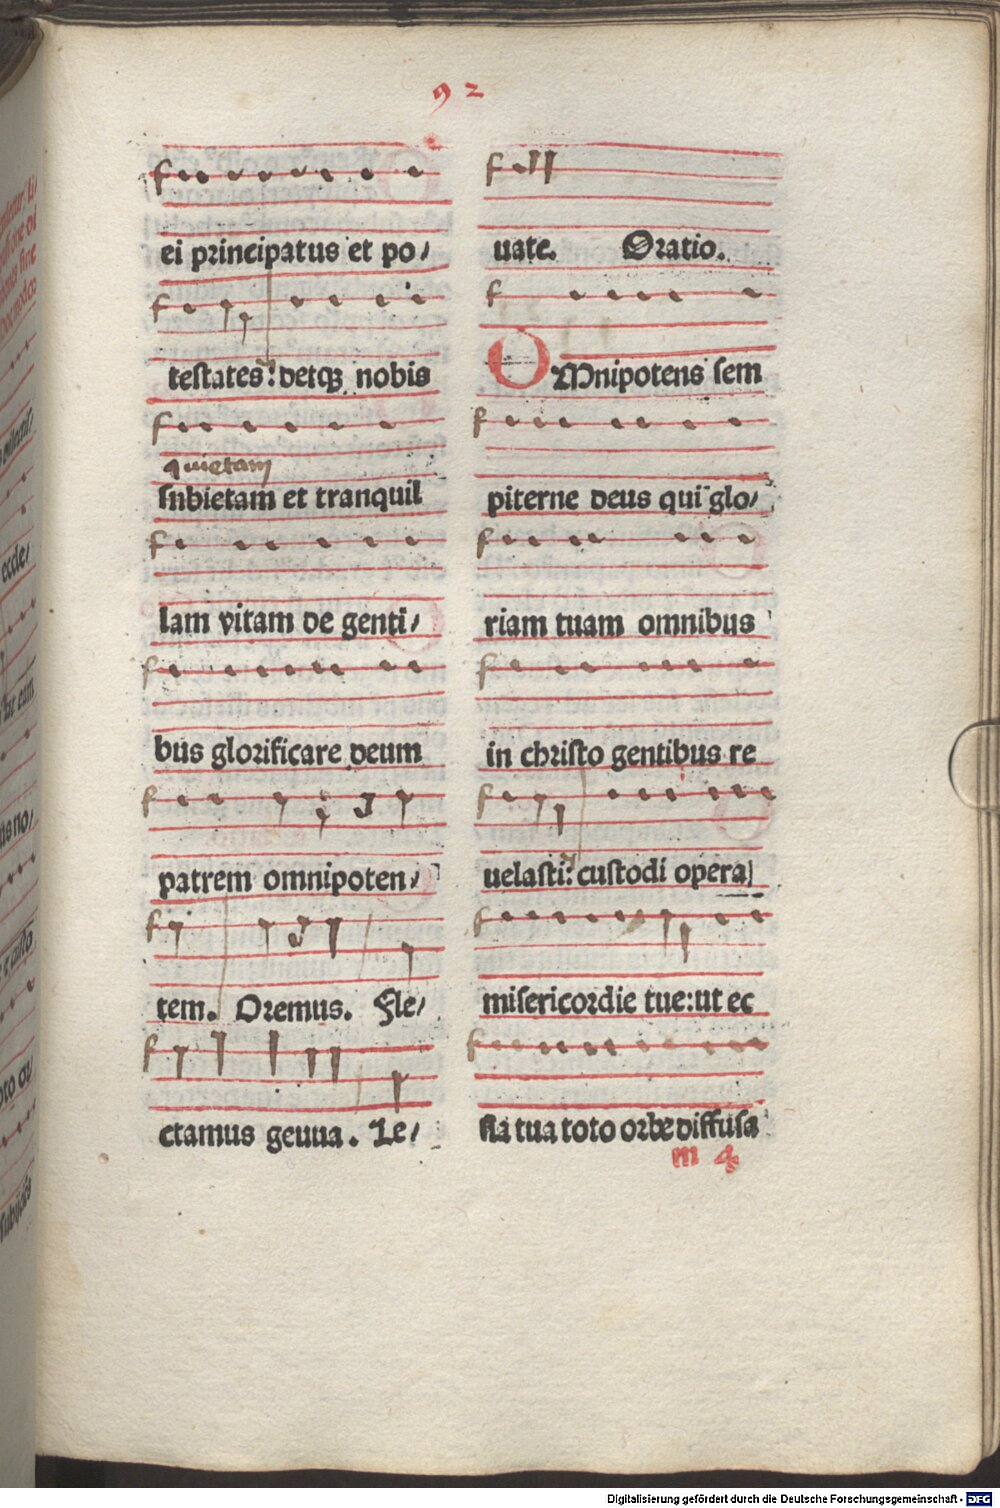 92
ei principatus et po/
testates: detqʒ nobis
quietam
subietam et tranquil
lam vitam de genti/
bus glorificare deum
patrem omnipoten/
tem. Oremus. Fle/
ctamus genua. Le/
uate. Oratio.
OMnipotens sem
piterne deus qui glo/
riam tuam omnibus
in christo gentibus re
uelasti: custodi opera
misericordie tue: ut ec
clesia tua toto orbe diffusa
m 4
Digitalisierung gefördert durch die Deutsche Forschungsgemeinschaft - DFG